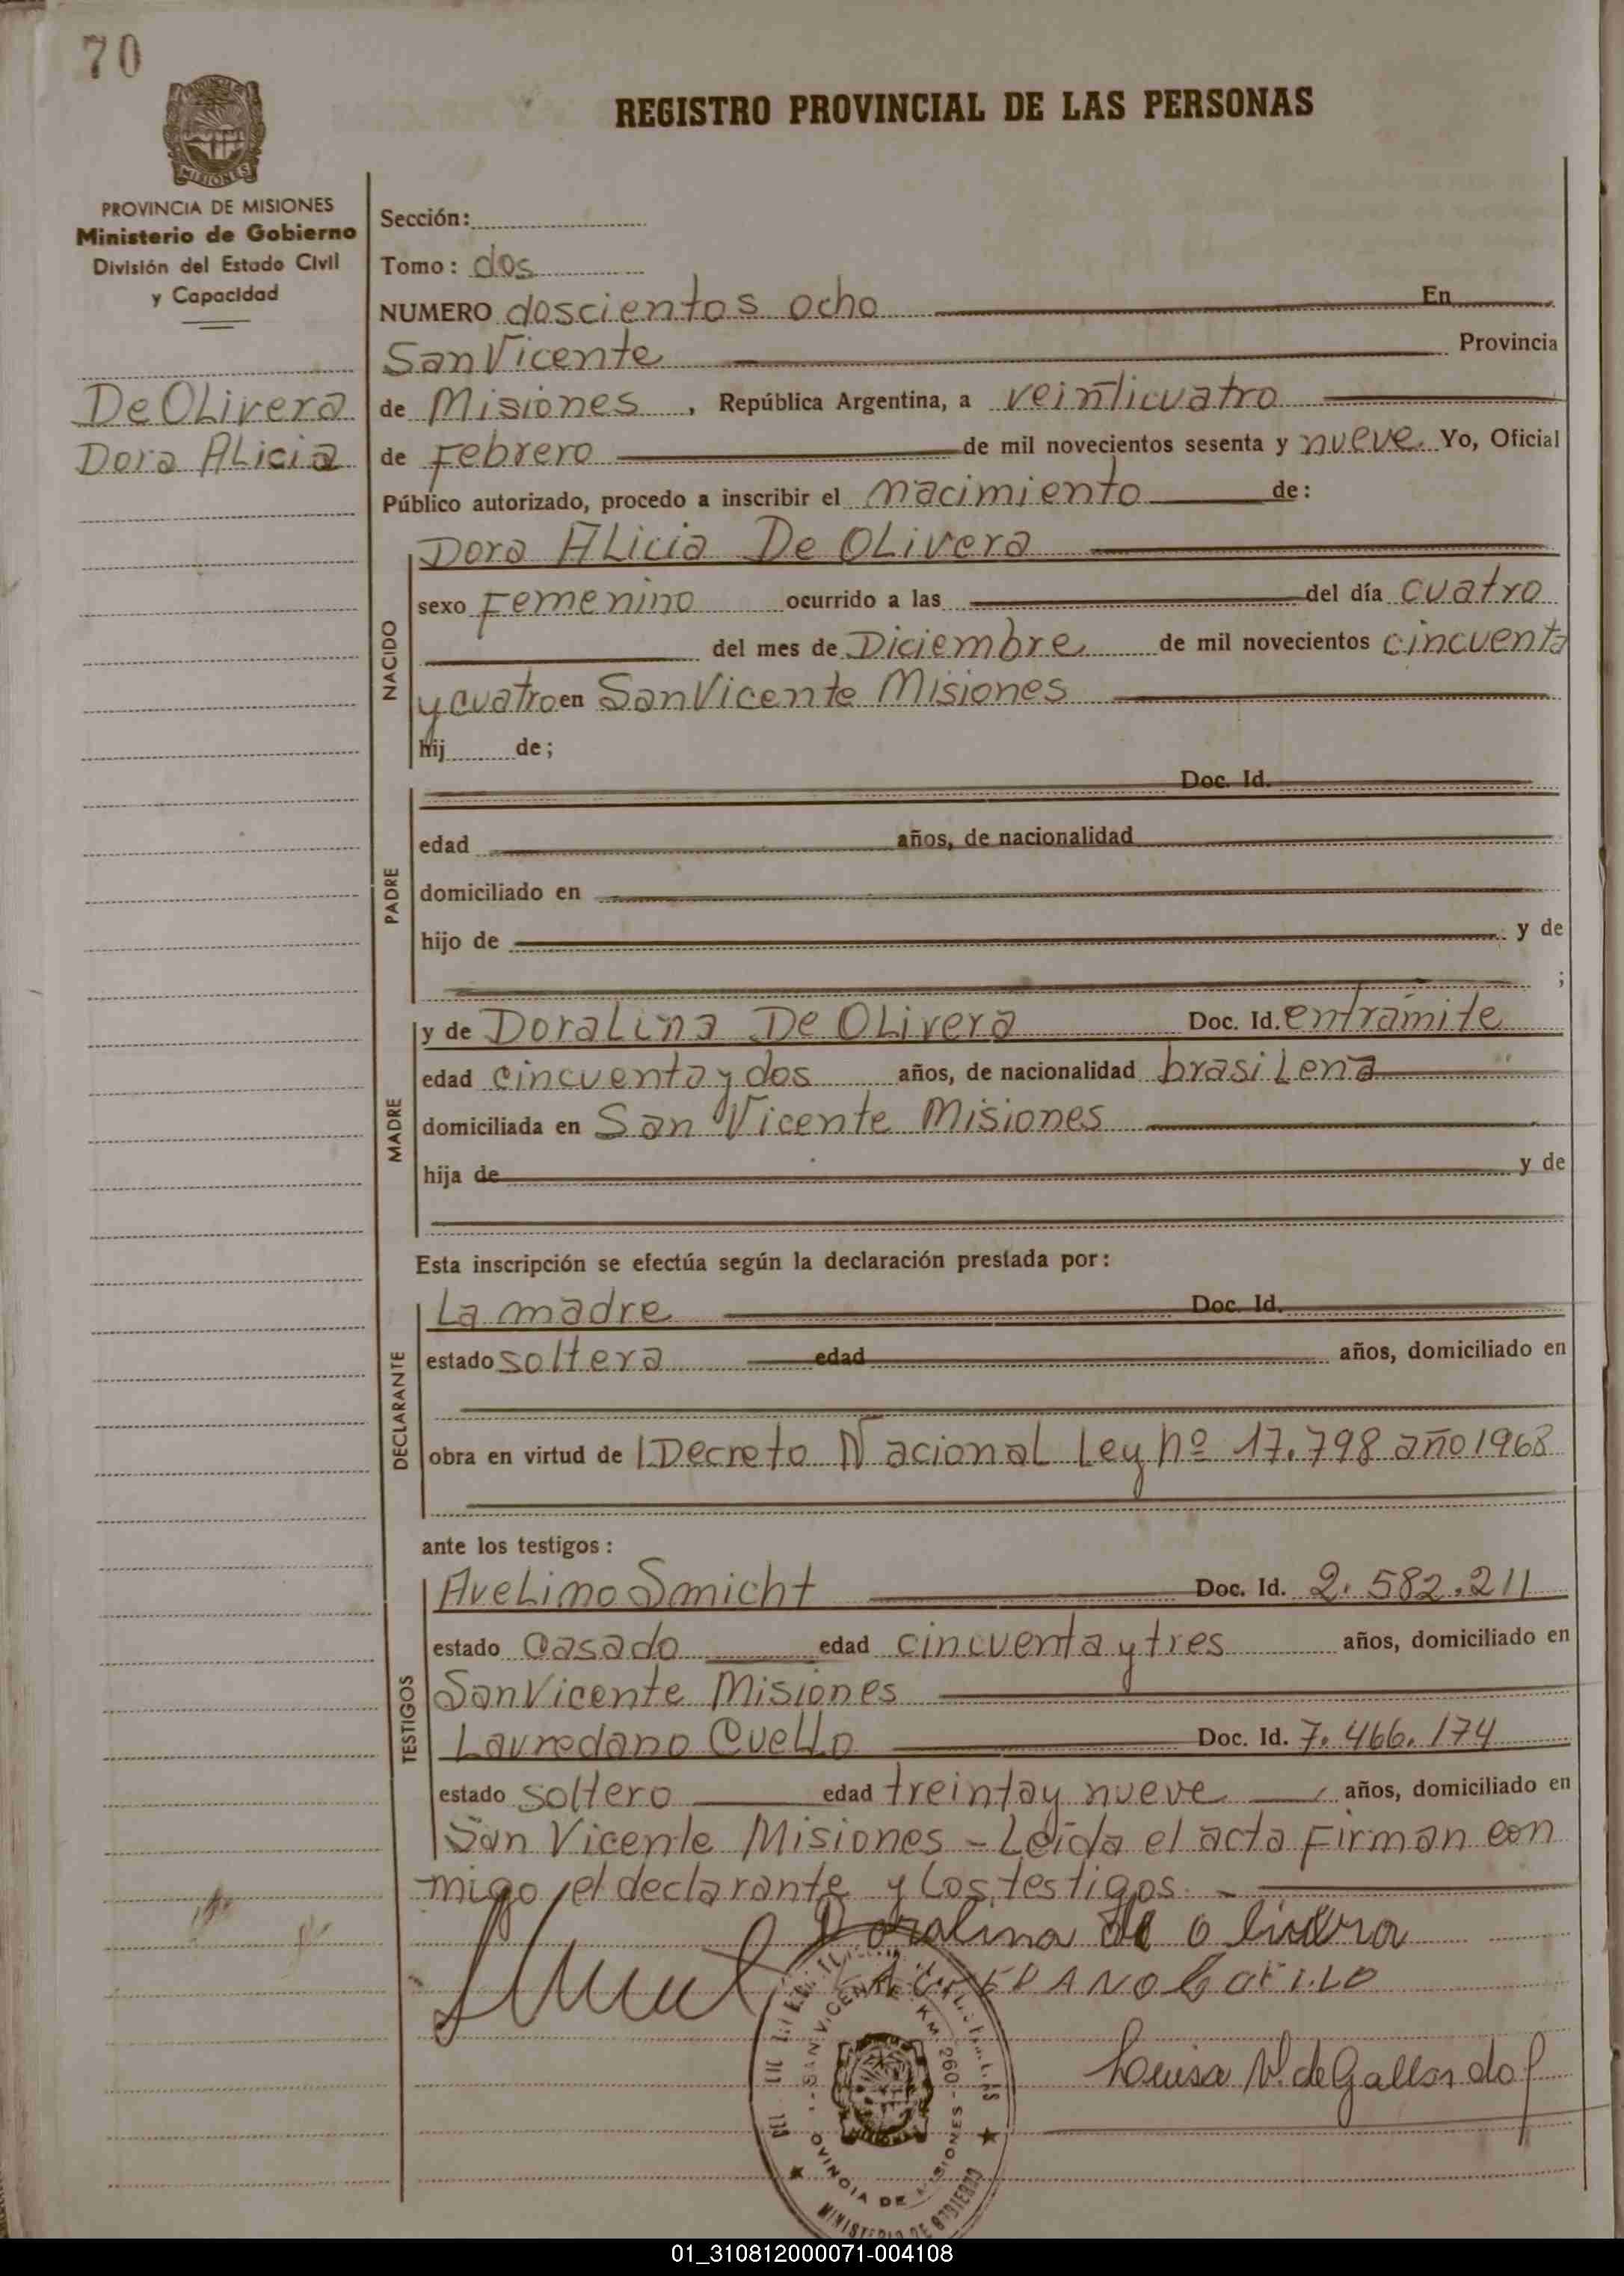 70
REGISTRO PROVINCIAL DE LAS PERSONAS
MISIONES
PROVINCIA DE MISIONES
Ministerio de Gobierno
División del Estado Civil
y Capacidad
De OLivera
Dora ALicia
Sección:
Tomo: dos
NUMERO doscientos ocho En
San Vicente Provincia
de Misiones, República Argentina, a veinticuatro
de Febrero de mil novecientos sesenta y nueve. Yo, Oficial
Público autorizado, procedo a inscribir el nacimiento de:
NACIDO
Dora ALicia De OLivera
sexo Femenino ocurrido a las del día cuatro
del mes de Diciembre de mil novecientos cincuenta
y cuatro en San Vicente Misiones
hij de;
PADRE
Doc. Id.
edad años, de nacionalidad
domiciliado en
hijo de y de
;
MADRE
y de DoraLina De OLivera Doc. Id. entrámite
edad cincuenta y dos años, de nacionalidad brasiLena
domiciliada en San Vicente Misiones
hija de y de
Esta inscripción se efectúa según la declaración prestada por:
DECLARANTE
La madre Doc. Id.
estado soltera edad años, domiciliado en
obra en virtud de l Decreto Nacional Ley nº 17.798 año 1968
ante los testigos:
TESTIGOS
AveLino Smicht Doc. Id. 2.582.211
estado casado edad cincuenta y tres años, domiciliado en
San Vicente Misiones
Lauredano Cuello Doc. Id. 7.466.174
estado soltero edad treinta y nueve años, domiciliado en
San Vicente Misiones - Leída el acta Firman con
migo, el declarante y los testigos. -
Doralina de olivera
SAN VICENTE KM. 260 - MISIONES
PROVINCIA DE MISIONES
MINISTERIO DE GOBIERNO
Luisa N. de Gallardo
01_310812000071-004108